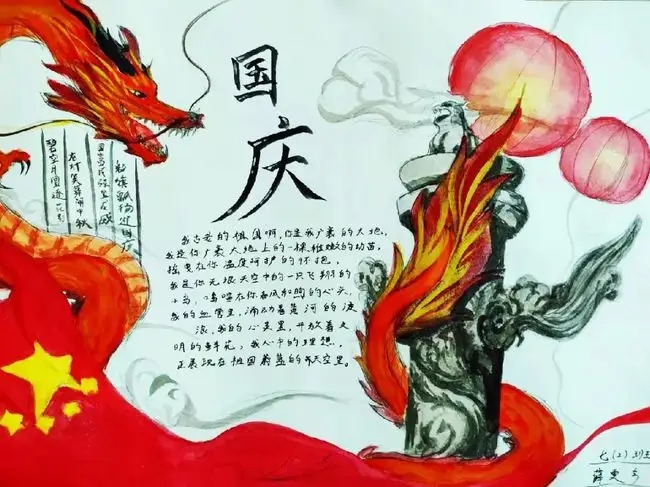 国
庆
飘扬迎国庆
国富民强
我古老的祖国啊,你是我广袤的大地,
我是你广袤大地上的一棵稚嫩的幼苗,
摇曳在你温度呵护的怀抱,
我是你无垠天空中的一只飞翔的
小鸟,鸣啼在你春风和煦的心头,
我的血管里,涌动着黄河的波
浪,我的心灵里,开放着文
明的鲜花,我心中的理想,
正展现在祖国蔚蓝的天空里。
七(2)班
薛